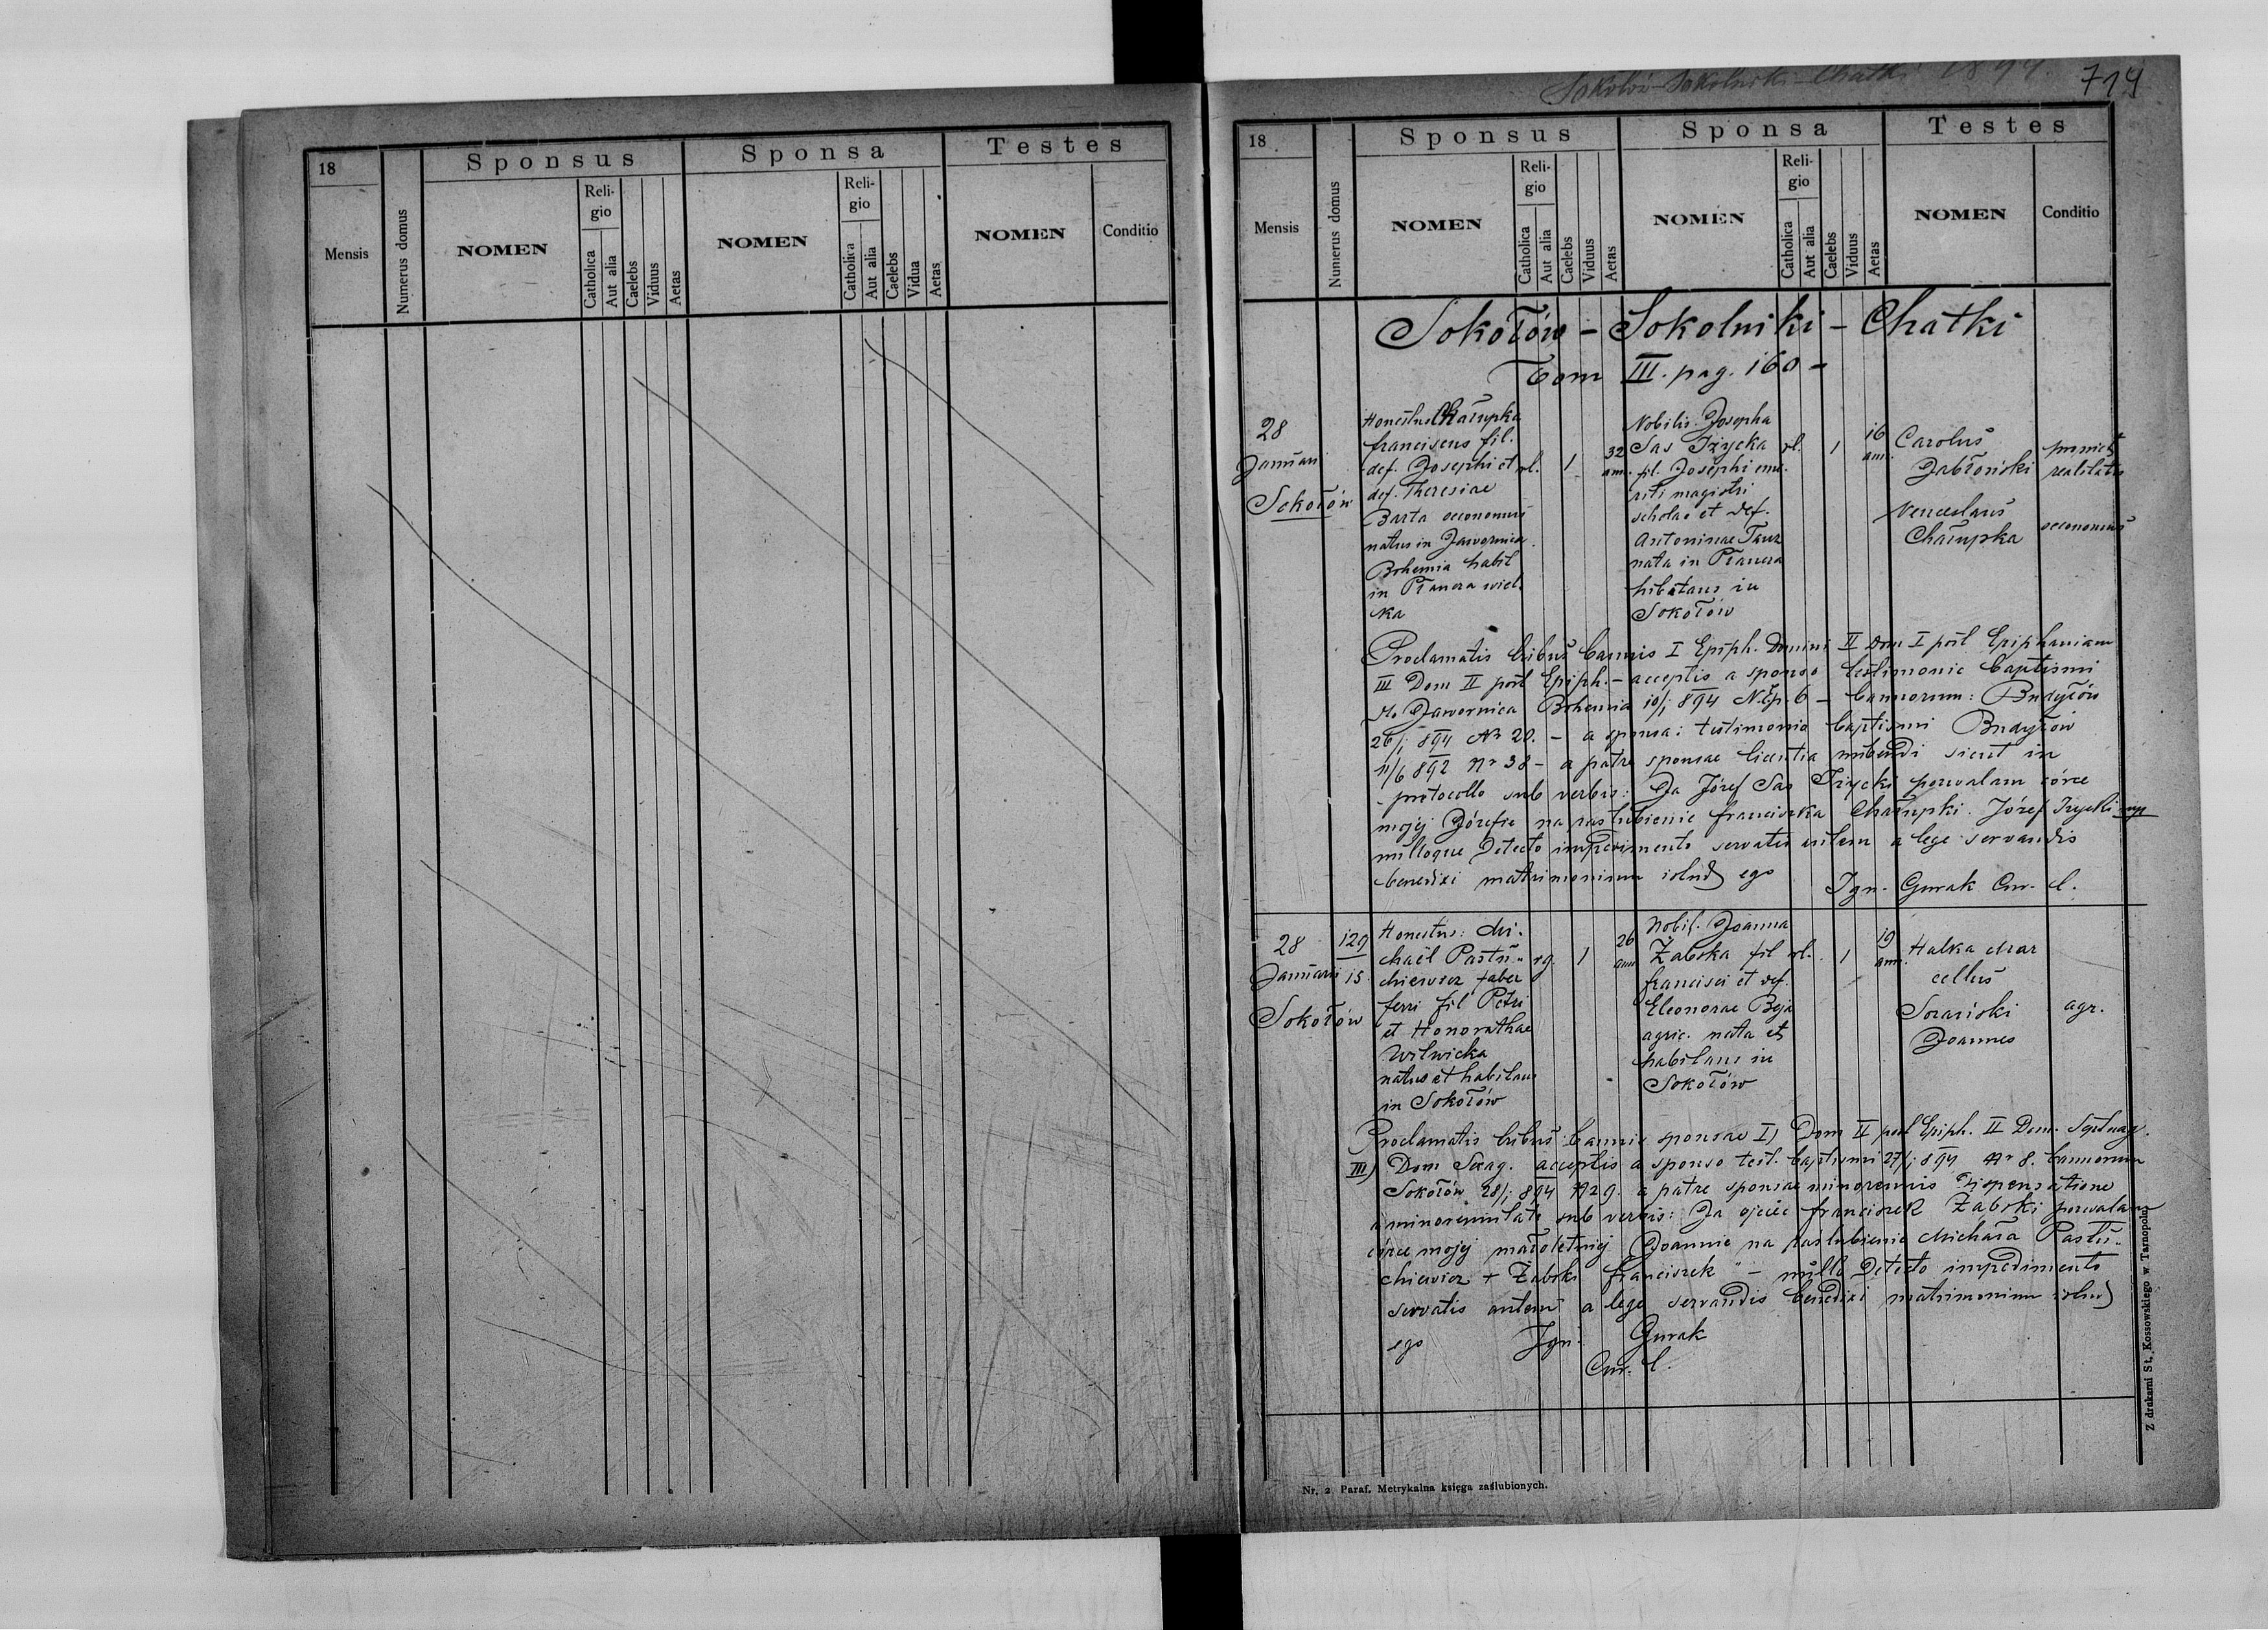 18
Sponsus
Sponsa
Testes
Mensis
Numerus domus
NOMEN
Religio
Catholica
Aut alia
Caelebs
Viduus
Aetas
NOMEN
Religio
Catholica
Aut alia
Caelebs
Vidua
Aetas
NOMEN
Conditio
Sokołów - Sokolniki - Chatki 1894.
714
18
Sponsus
Sponsa
Testes
Mensis
Numerus domus
NOMEN
Reli-
gio
Catholica
Aut alia
Caelebs
Viduus
Aetas
NOMEN
Reli-
gio
Catholica
Aut alia
Caelebs
Viduus
Aetas
NOMEN
Conditio
Sokołów - Sokolniki - Chatki
Tom III. pag. 160 -
28
Januari
Sokołów
Honestus Chałupka
Franciscus fil.
def. Josephi et
def. Theresiae
Barta oeconomus
natus in Jawornica
Bohemia habit
in Płaucza wiel
ka
rl.
1
32
ann.
Nobilis Josepha
Sas Iżycka
fil. Josephi eme-
riti magistri
scholae et def.
Antoninae
nata in Płaucza
hibitans in
Sokołów
rl.
1
16
ann.
Carolus
Jabłoński
realitatis
Venceslaus
Chałupka
oeconomus
Proclamatis tribus bannis I Epiph. Domini II Dom I post Epiphaniam
III Dom II post Epiph. - acceptis a sponso testimonio baptismi
Jawornica Bohemia 10/1 894 N. Ep. 6 - bannorum: Budyłów
26/1 894 Nr 20. - a sponsa: testimonio baptismi Budyłów
11/6 892 Nr 38 - a patre sponsae licentia nubendi sicut in
protocollo sub verbis: Ja Józef Sas Iżycki pozwalam córce
mojej Józefie na zaślubienie Franciszka Chałupki. Józef Iżycki mp
nulloque detecto impedimento servatis autem a lege servandis
benedixi matrimonium istud ego
Ign. Gurak Cur. l.
28
Januarii
Sokołów
129
15
Honestus: Mi-
chaël Pastu-
chiewicz faber
ferri fil Petri
et Honorathae
Wilwicka
natus et habitans
in Sokołów
rg.
1
26
ann
Nobil. Joanna
Żabska fil
Francisci et def.
Eleonorae Beja
agric. nata et
habitans in
Sokołów
rl.
1
19
ann.
Halka Mar
cellus
Joannes
agr.
Proclamatis tribus bannis sponsae I) Dom II post Epiph. II Dom. Septuag.
III) Dom Sexag. acceptis a sponso test. baptismi 27/1 894 Nr 8. bannorum
Sokołów 28/1 894 N 29. a patre sponsae minorennis dispensatione
a minorennitate sub verbis: Ja ojciec Franciszek Żabski pozwalam
córce mojej małoletniej Joannie na zaślubienie Michała Pastu-
chiewicz + Żabski Franciszek" - nullo detecto impedimento
servatis autem a lege servandis benedixi matrimonium istud
ego Ign. Gurak
Cur. l.
Nr. 2. Paraf. Metrykalna księga zaślubionych.
Z drukarni St. Kossowskiego w Tarnopolu.